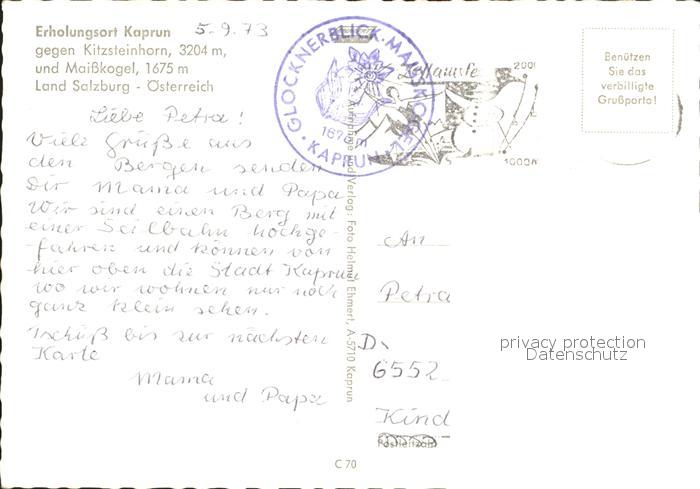 Erholungsort Kaprun 5.9.73
gegen Kitzsteinhorn, 3204 m,
und Maißkogel, 1675 m
Land Salzburg - Österreich
Liebe Petra!
Viele Grüße aus
den Bergen senden
Dir Mama und Papa
Wir sind einen Berg mit
einer Seilbahn hochge-
fahren und können von
hier oben die Stadt Kaprun
wo wir wohnen nur noch
ganz klein sehen.
Tschüß bis zur nächsten
Karte
Mama
und Papa
GLOCKNERBLICK · MAISKOGEL
1675 m
KAPRUN
Verlag: Foto Helmut Ehmert, A-5710 Kaprun
Benützen
Sie das
verbilligte
Grußporto!
An
Petra
D.
6552
Kind
Postleitzahl
privacy protection
Datenschutz
C 70